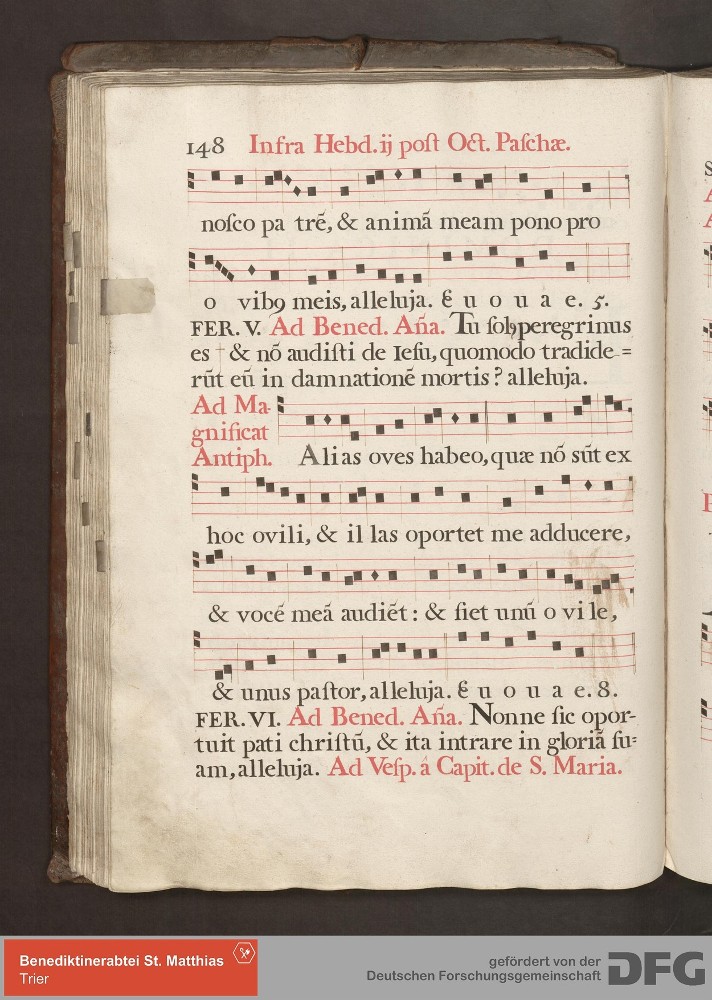 148 Infra Hebd. ij poſt Oct. Paſchæ.
noſco pa trē, & animā meam pono pro
o vibꝯ meis, alleluja. E u o u a e. 5.
FER. V. Ad Bened. Aña. Tu ſolꝯ peregrinus
es † & nō audiſti de Ieſu, quomodo tradide=
rūt eū in damnationē mortis? alleluja.
Ad Ma-
gnificat
Antiph. Alias oves habeo, quæ nō sūt ex
hoc ovili, & il las oportet me adducere,
& vocē meā audiēt: & fiet unū o vi le,
& unus paſtor, alleluja. E u o u a e. 8.
FER. VI. Ad Bened. Aña. Nonne ſic opor-
tuit pati chriſtū, & ita intrare in gloriā ſu=
am, alleluja. Ad Veſp. â Capit. de S. Maria.
Benediktinerabtei St. Matthias
Trier
gefördert von der
Deutschen Forschungsgemeinschaft
DFG